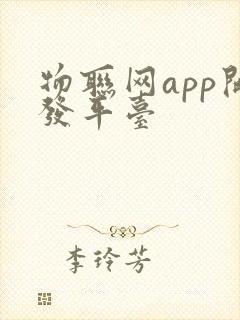 物聯网app開
發平臺
李玲芳